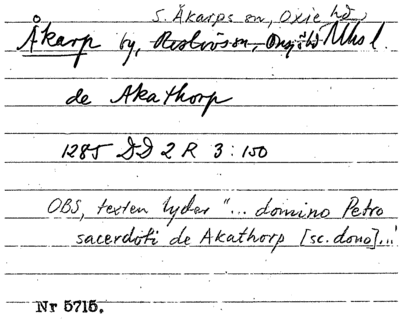 S. Åkarps sn, Oxie hd
Åkarp by, Mhsl.
de Akathorp
1285 DD 2 R 3:150
OBS, texten lyder "... domino Petro
sacerdoti de Akathorp [sc. dono]..."
Nr 5715.